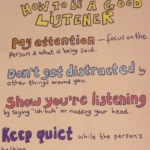 HOW TO BE A GOOD
LISTENER
Pay attention - focus on the
person & what is being said.
Don't get distracted by
other things around you.
Show you're listening
by saying "uh huh" or nodding your head.
Keep quiet while the person's
talking